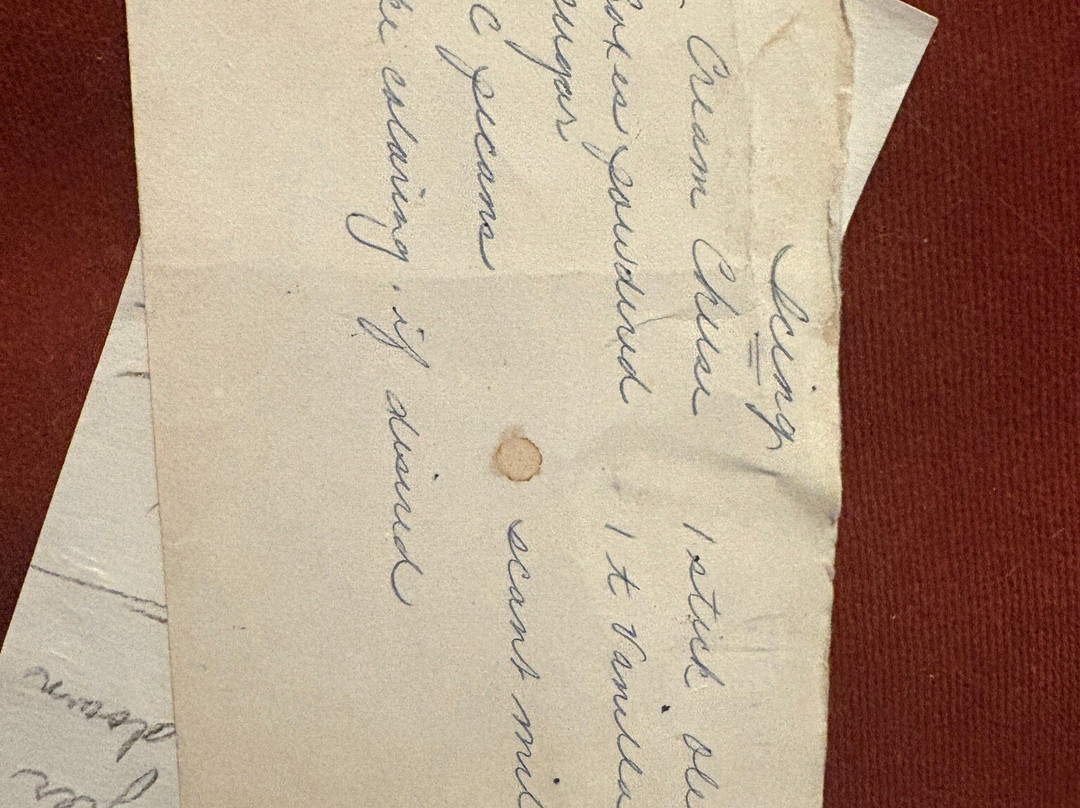 Icing
Cream Cheese 1 stick Ole
Boxes powdered 1 t Vanilla
sugar
C pecans scant mil
ke coloring if desired
down